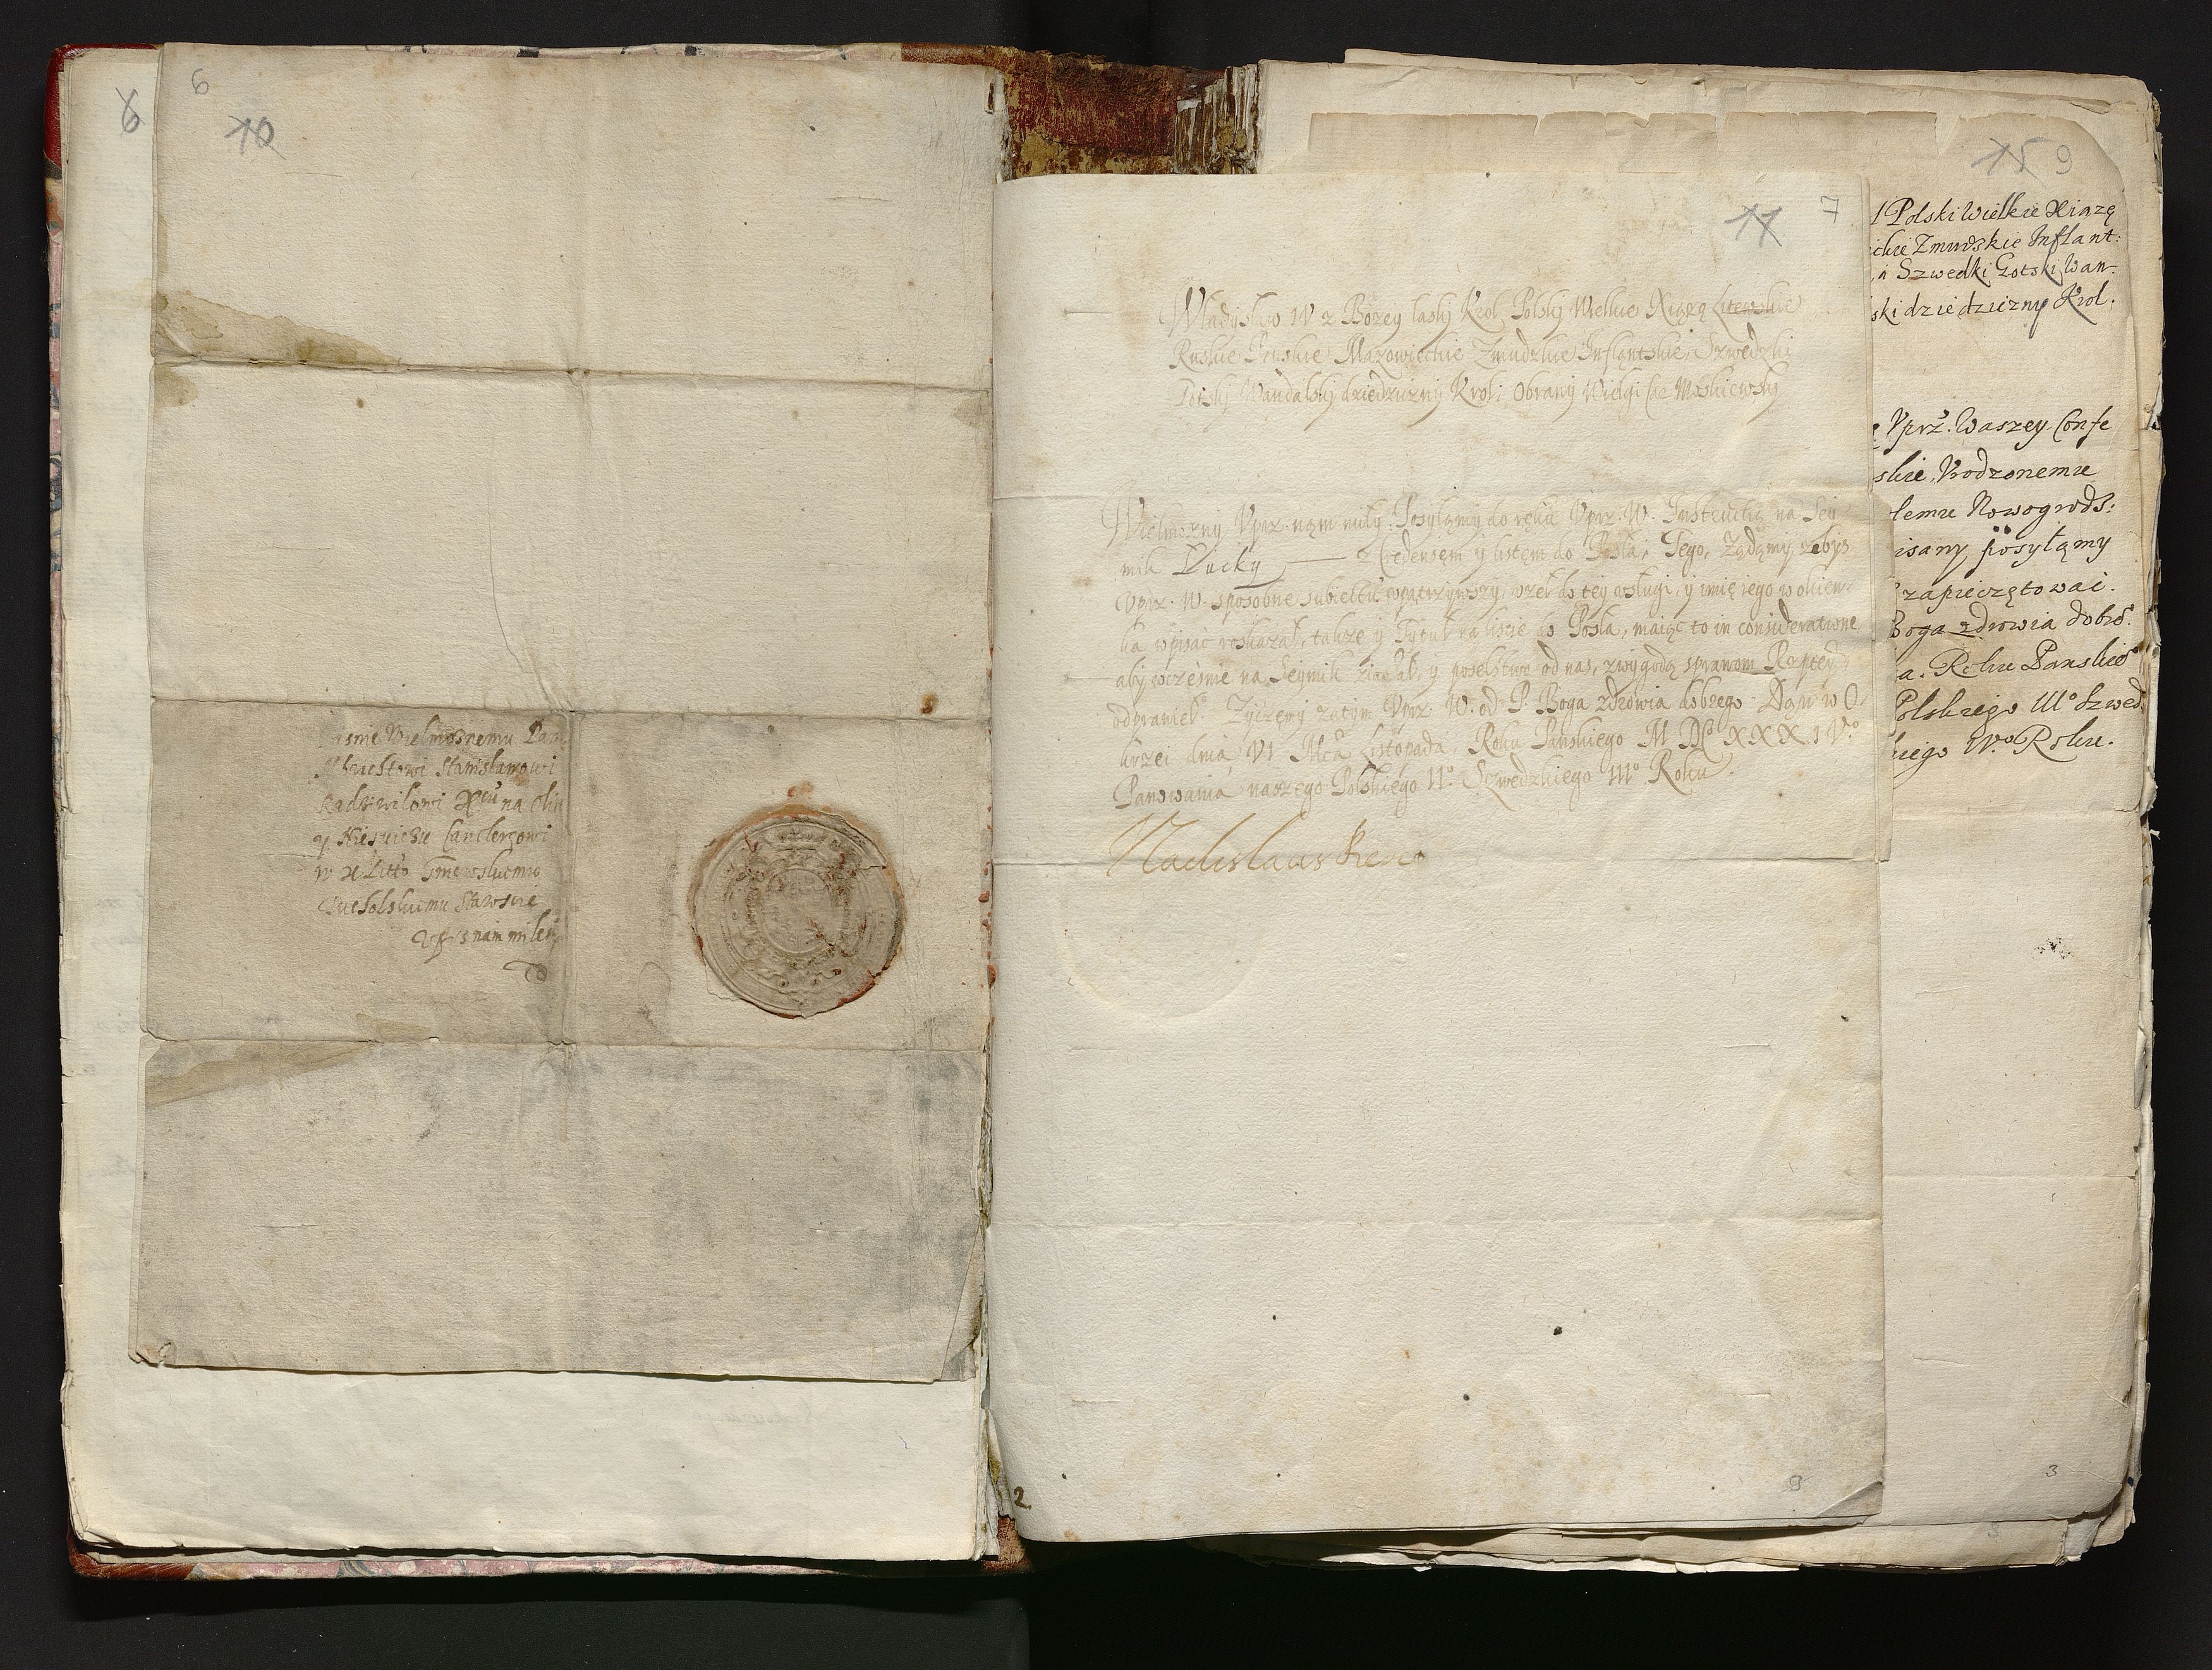 6
6
10
Jasnie Wielmoznemu Pan
Stanislawowi
Radziwilowi Xciu na Oly
y Nieswiezu Canclerzowi
W X Litto
Tucholskiemu Staroscie
nam milem
11
7
Władysław IV z Bożey łaskj Krol Polskj Wielkie Xiązę Litewskie
Ruskie Pruskie Mazowieckie Żmudzkie Inflantskie, Szwedzkj
Gotskj Wandalskj dziedzicznj Krol; Obranÿ Wielgi Car Moskiewskj
Wielmoznÿ Vprz. nąm miłÿ. Posyłąmy do rąku Vprz. W. Instructią na Sey
mik Łucky z Credensęm ÿ listęm do Posła; Tego, Żądąmy, żebyś
Vprz. W. sposobne subiectũ vpatrzywszy, vżeł do tey vsługi, y imię iego w okien
ka wpisać roskazał, także ÿ Tytuł na liscie do Posła, maiąc to in consideratione
aby wcześnie na Seymik ziachał, y poselstwo od nas, z wygodą sprawom Rzptey
odprawieł. Życzęmy zatym Vprz. W. od P. Boga zdrowia dobrego. Dąn w O
krzei dnia VI Mca Listopada, Roku Pańskiego M DC XXXIV.o
Panowania naszego Polskiego IIo Szwedzkiego IIIo Roku.
Vladislaus Rex
2
9
15 9
l Polski Wielkie Xiązę
ckie Zmudskie Inflant:
a Szwedki Gotski Wan-
ski dziedziczny Krol.
Vprz. Waszey Confe
skie, Vrodzonemu
lemu Nowogrods:
isany posyłąmy
zapieczętowac.
Boga zdrowia dobr.
a. Roku Panskieo
Polskiego IIIo Szwed
kiego IV.o Roku.
3
3